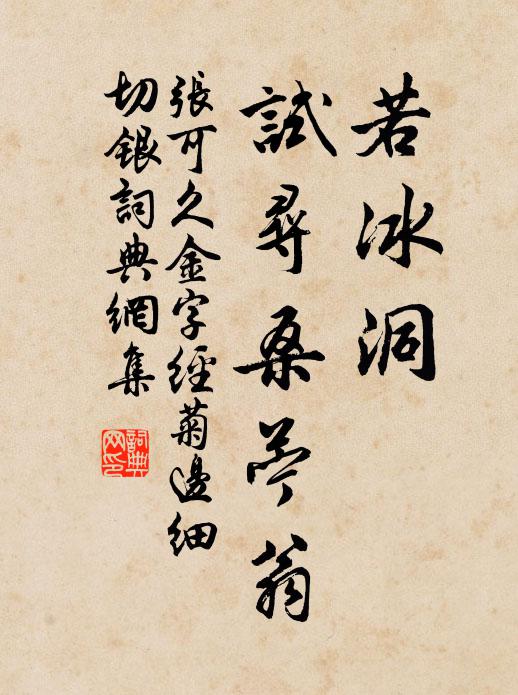 若冰洞
試尋桑苧翁
張可久金字經菊邊細
切銀詞典網集
詞典網印